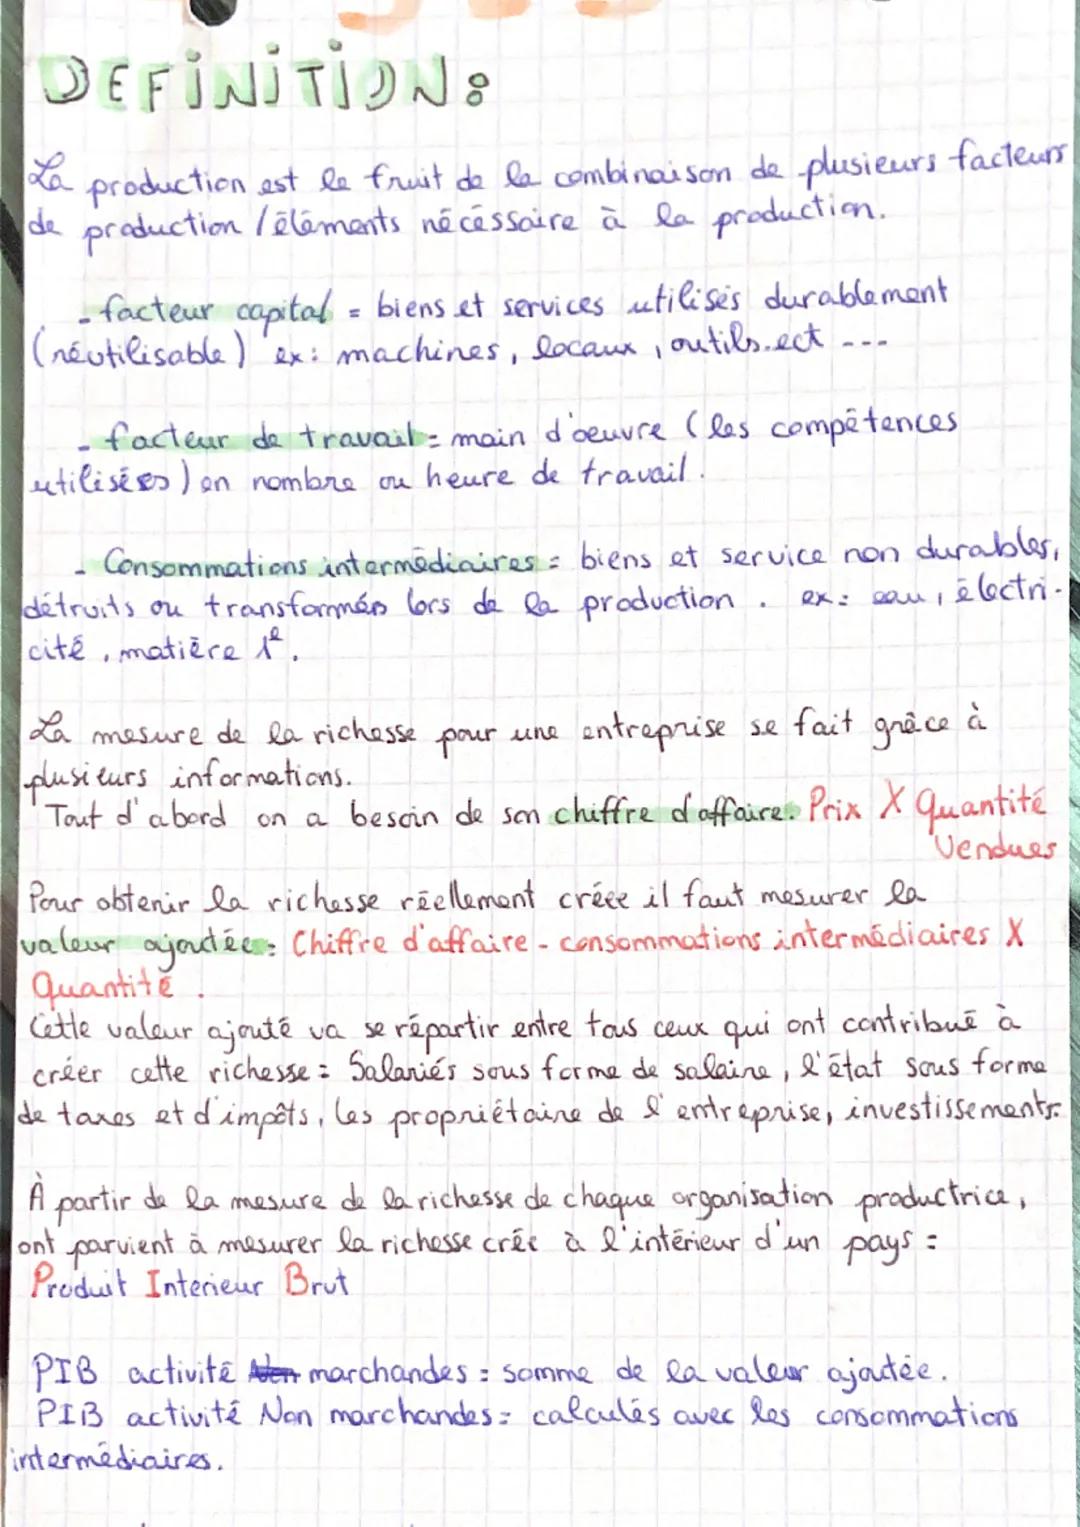 DEFINITION :
La production est le fruit de la combinaison de plusieurs facteurs
de production / éléments nécéssaire à la production.
- facteur capital = biens et services utilisés durablement
(réutilisable) ex : machines, locaux, outils.ect ---
- facteur de travail = main d'oeuvre (les compétences
utilisées) en nombre ou heure de travail.
- Consommations intermédiaires = biens et service non durables,
détruits ou transformés lors de la production . ex : eau, électri-
cité, matière 1e.
La mesure de la richesse pour une entreprise se fait grâce à
plusieurs informations.
Tout d'abord on a besoin de son chiffre d'affaire. Prix X Quantité
Vendues
Pour obtenir la richesse réellement créée il faut mesurer la
valeur ajoutée : Chiffre d'affaire - consommations intermédiaires X
Quantité .
Cette valeur ajouté va se répartir entre tous ceux qui ont contribué à
créer cette richesse : Salariés sous forme de salaire, l'état sous forme
de taxes et d'impôts, les propriétaire de l'entreprise, investissements.
À partir de la mesure de la richesse de chaque organisation productrice,
ont parvient à mesurer la richesse crée à l'intérieur d'un pays =
Produit Interieur Brut
PIB activité marchandes = somme de la valeur ajoutée.
PIB activité Non marchandes = calculés avec les consommations
intermédiaires.